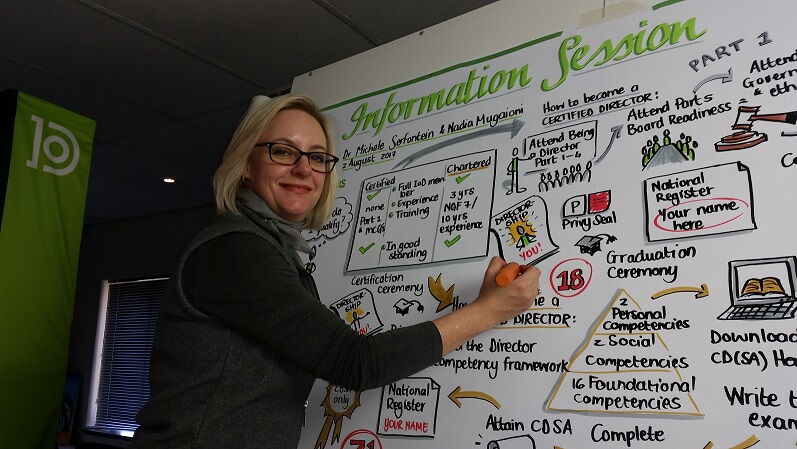 Information Session
Dr Michele Serfontein & Nadia Mugaioni
2 August 2017
How to become a
CERTIFIED DIRECTOR:
PART 1
Attend
Govern
& eth
Attend Part 5
Board Readiness
Attend Being
a Director
Part 1-4
Certified
none
Part 1
& MCQs
Full IoD mem
ber
Experience
Training
In good
standing
Chartered
3 yrs
NQF 7/
10 yrs
experience
do
qualify?
DIRECTOR
SHIP
YOU!
Privy Seal
National
Register
Your name
here
Graduation
Ceremony
18
Certification
ceremony
DIRECTOR
SHIP
YOU
DIRECTOR:
the Director
competency framework
2
Personal
competencies
2 Social
Competencies
16 Foundational
competencies
Download
CD(SA)
Write
exam
Complete
Attain CDSA
National
Register
YOUR NAME
only
71